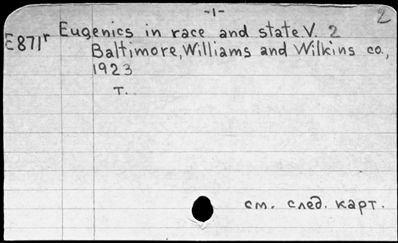 -1-
2
E871r Eugenics in race and state V. 2
Baltimore, Williams and Wilkins co.,
1923
т.
см. след. карт.